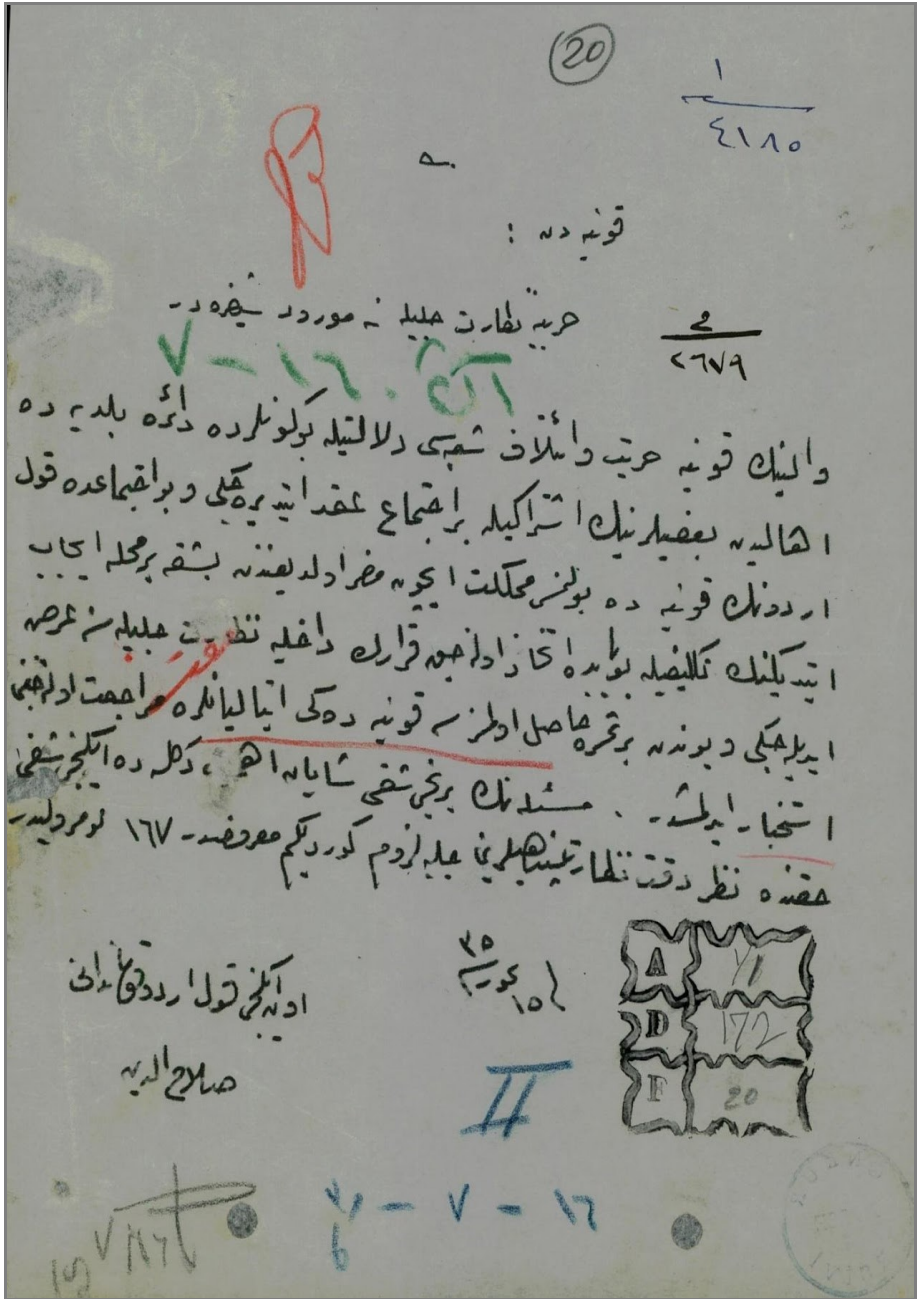 20
١
٤١٨٥
قونیه دن :
حربیه نظارت جلیله سنه مورود شیفره در
٢٦٧٩
١٦ - ٧
والینك قونیه حریت وائتلاف شعبه سی دلالتیله بوكونلرده دائرۀ بلدیه ده
اهالیدن بعضیلرینك اشتراكیله بر اجتماع عقد ایتدیره جكی و بو اجتماعده قول
اردونك قونیه ده بولنمسی مملكت ایچون مضر اولدیغندن بشقه بر محله ایجاب
ایتدیكنك تكلیفیله بوبابده اتخاذ اولنه جق قرارك داخلیه نظارت جلیله سنه عرض
ایدیله جكی و بوندن بر ثمره حاصل اولمزسه قونیه ده كی ایتالیانلره مراجعت اولنه جغی
استخبار ایدلمشدر . مسئله نك برنجی شقی شایان اهمیت دكلسه ده ایكنجی شقی
حقنده نظر دقت نظارتپناهیلرینی جلبه لزوم كوردیكم معروضدر ١٦٧ نومرولیدر
٣٥
١٥ تموز
اون ایكنجی قول اردو قوماندانی
صلاح الدین
A
D 172
F 20
II
١٦ - ٧ -